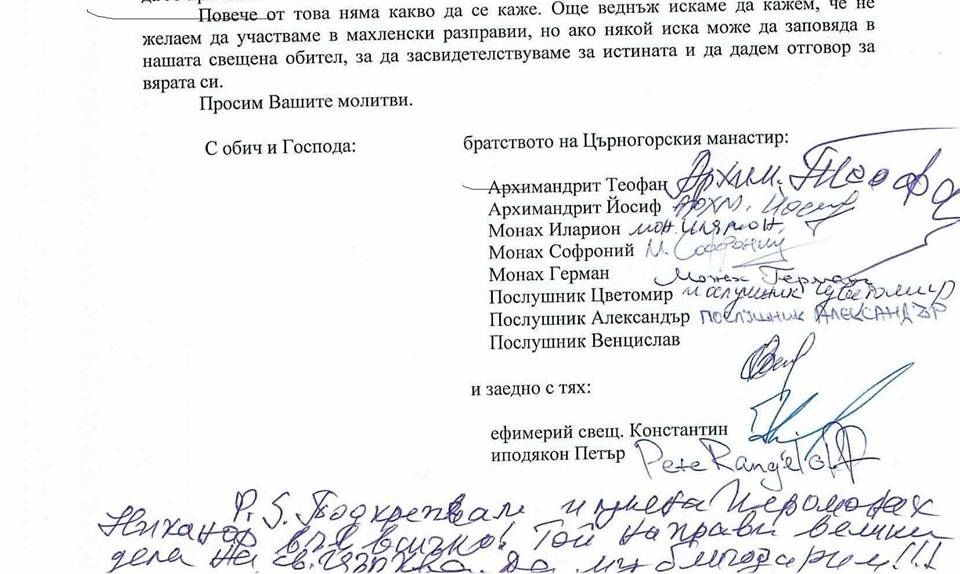 Повече от това няма какво да се каже. Още веднъж искаме да кажем, че не
желаем да участваме в махленски разправии, но ако някой иска може да заповяда в
нашата свещена обител, за да засвидетелствуваме за истината и да дадем отговор за
вярата си.
Просим Вашите молитви.
С обич и Господа:
братството на Църногорския манастир:
Архимандрит Теофан Архим. Теофа
Архимандрит Йосиф Архм. Йосиф
Монах Иларион мон. Иларион
Монах Софроний М. Софроний
Монах Герман Монах Герман
Послушник Цветомир послушник Цветомир
Послушник Александър ПОСЛУШНИК АЛЕКСАНДЪР
Послушник Венцислав
и заедно с тях:
ефимерий свещ. Константин
иподякон Петър Pete Rangelov
P.S. Подкрепям и цена Йеромонах
Никанор във всичко! Той направи велики
дела на св. църква. Да му благодарим!!!